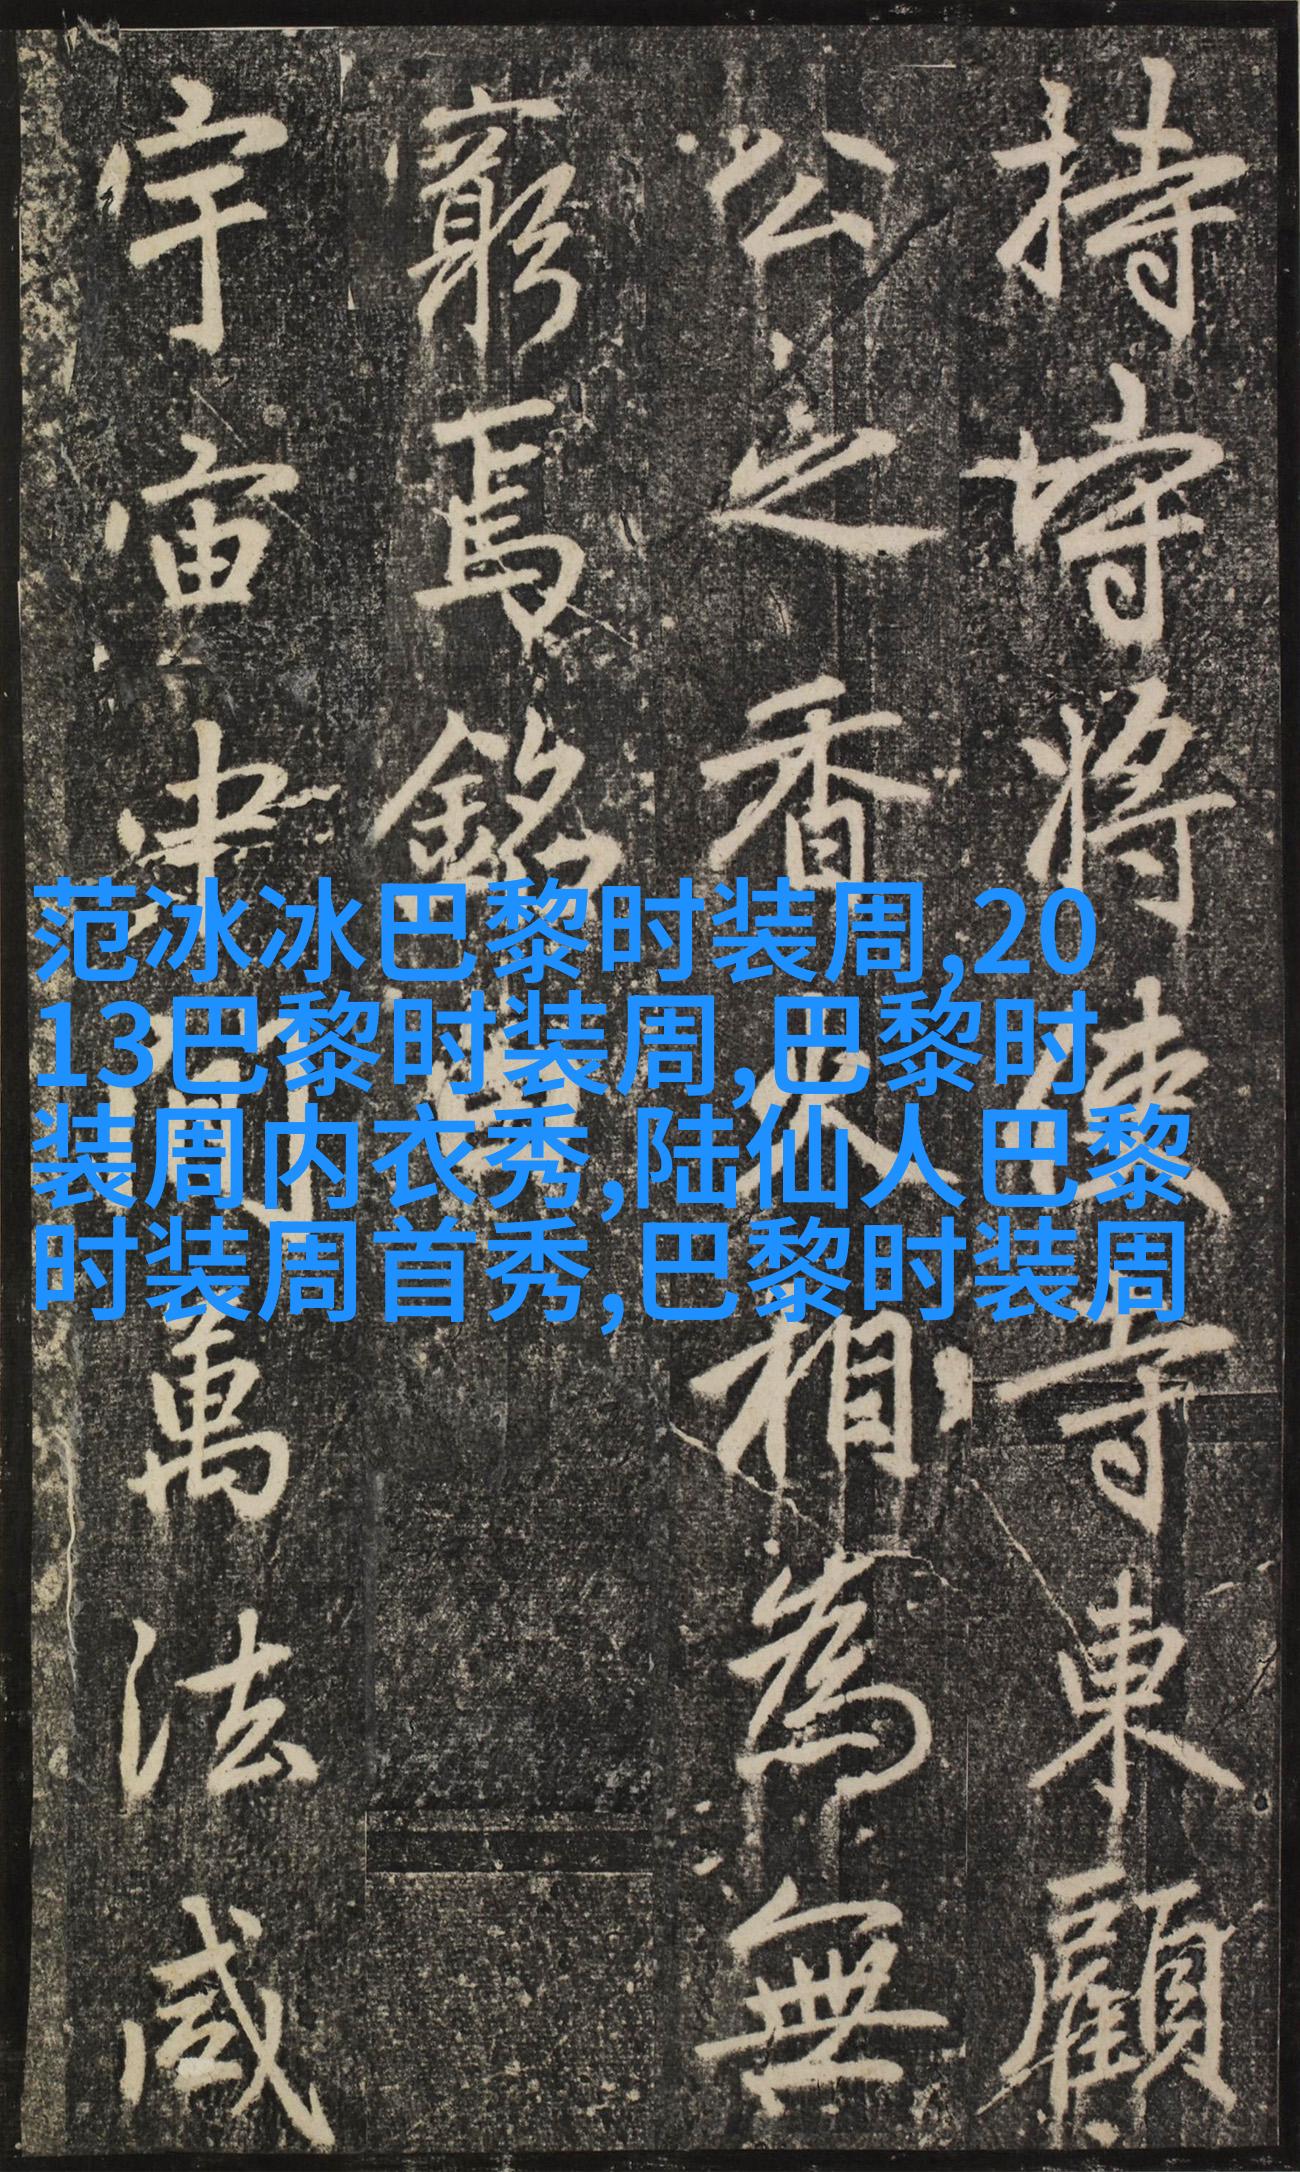 范冰冰巴黎时装周,20
13巴黎时装周,巴黎时
装周内衣秀,陆仙人巴黎
时装周首秀,巴黎时装周
持守將寺東顧
公之香火相為無
窮焉銘
宇宙萬法咸